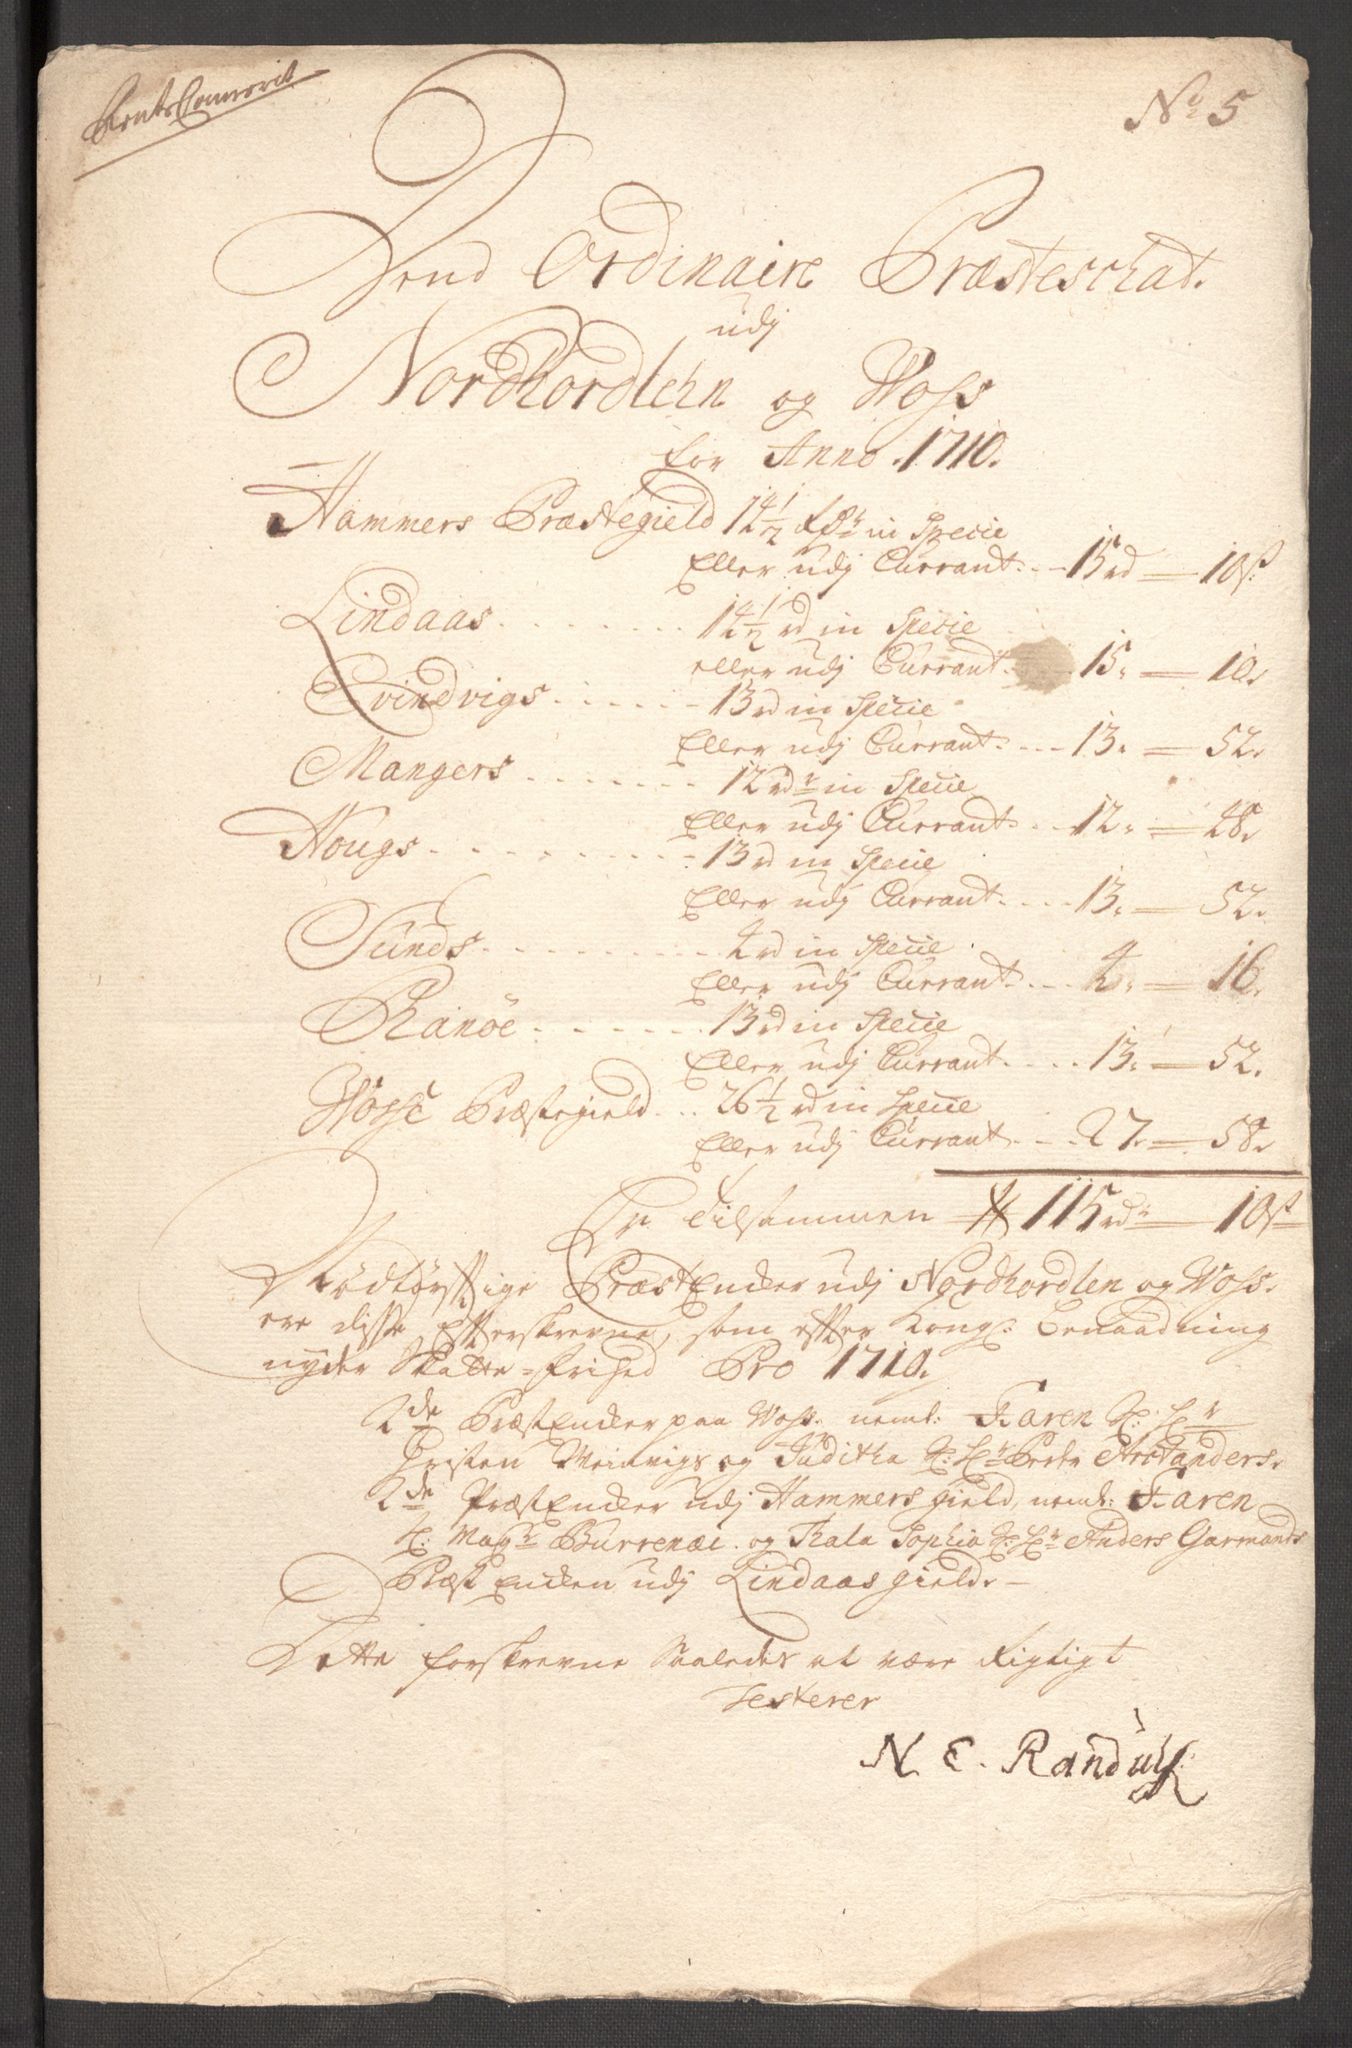 No 5
Dend Ordinaire Præsteschat.
udj
Nordhordlehn og Woss
for Anno .1710.
Hammers Præstegield 14½ Rdr in Specie
Eller udj Currant. 15 rd 10 s
Lindaas 14½ rd in Specie
eller udj Currant 15. 10.
Evindvigs 13 rd in Specie
Eller udj Currant 13. 52.
Mangers 12 rdr in Specie
Eller udj Currant 12. 48.
Hougs 13 rd in Specie
Eller udj Currant 13. 52.
Sunds 4 rd in Specie
Eller udj Currant 4. 16.
Ranøe 13 rd in Specie
Eller udj Currant 13. 52.
Wosse Præstegield 26½ rd in Specie
Eller udj Currant 27. 58.
Er tilsammen 115 rdr 10 s
Nødtørfftige PræstEncker udj Nordhordlen og Woss.
ere disse Effterskrevne, som effter Kongl: Benaadning
nyder Skatte-frihed Pro 1710.
2de PræstEncker paa Woss. neml: Karen Sl: Hr
Christen Weinvigs og Juditha Sl: Hr Peder Arctanders.
2de PræstEncker udj Hammers gield, neml: Karen
Sl: Magr Burrenæi. og Thala Sophia Sl: Hr Anders Garmands
Præst Encken udj Lindaas gield.
Dette forskrevne Saaledes at være Rigtigt
Testerer
N. E. Randulf